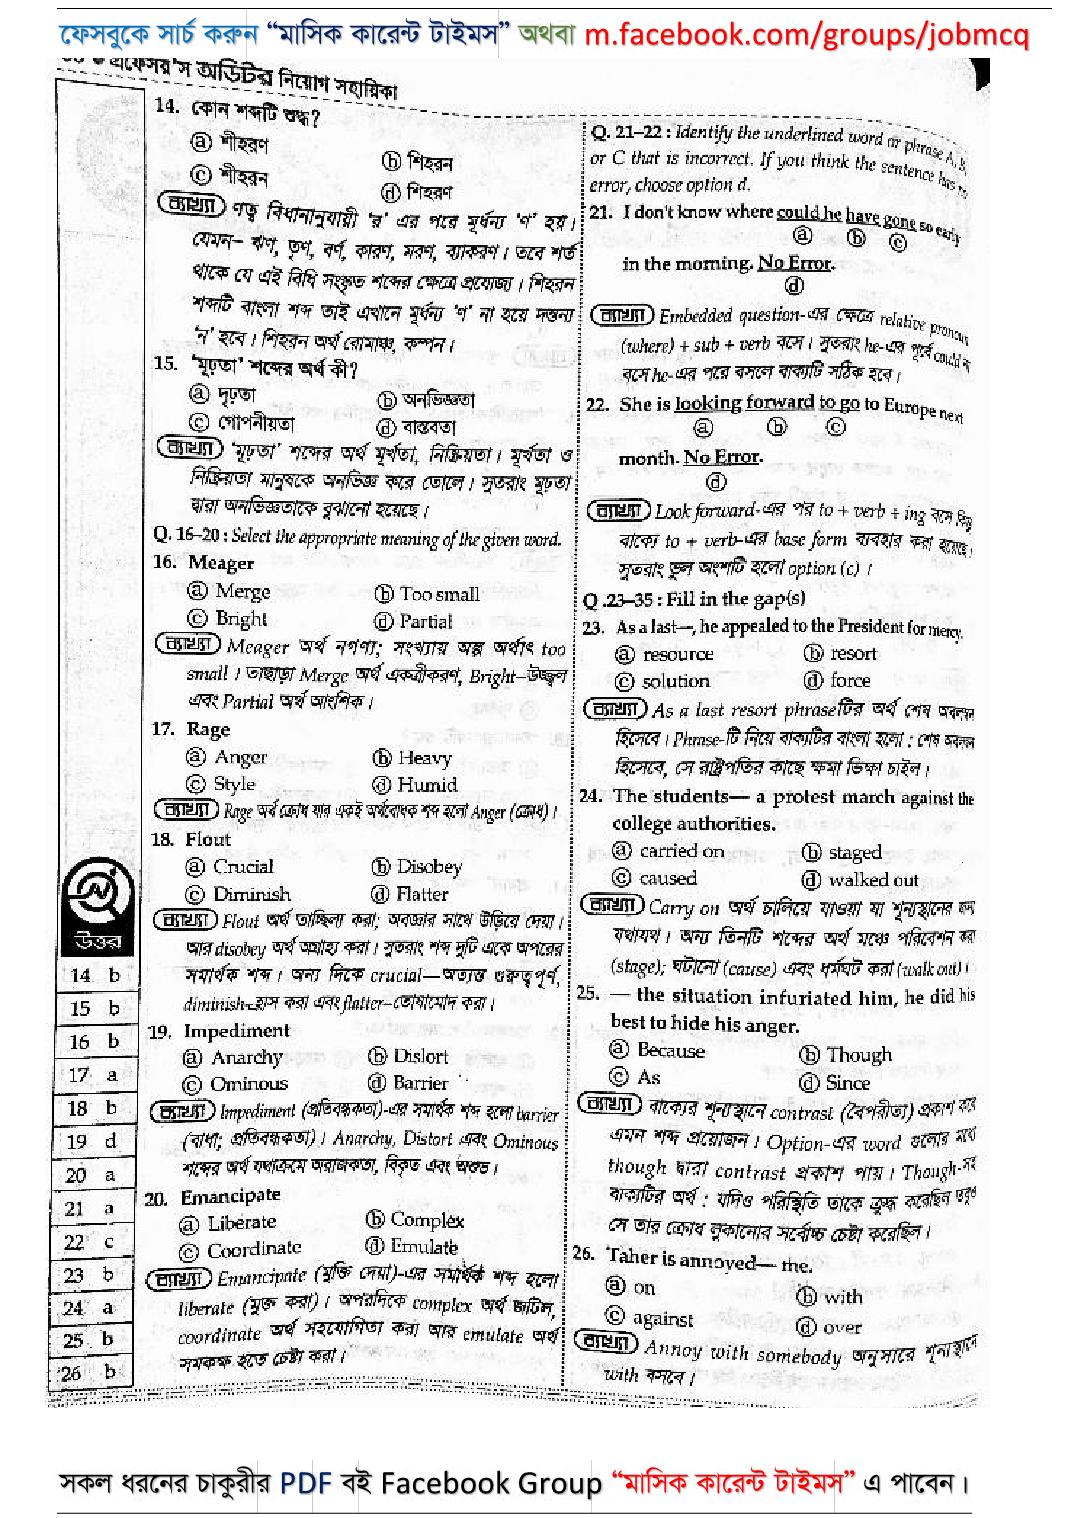 ফেসবুকে সার্চ করুন “মাসিক কারেন্ট টাইমস” অথবা m.facebook.com/groups/jobmcq
প্রফেসর'স অডিটর নিয়োগ সহায়িকা
14. কোন শব্দটি শুদ্ধ?
ⓐ শীহরণ
ⓑ শিহরন
ⓒ শীহরন
ⓓ শিহরণ
ব্যাখ্যা ণত্ব বিধানানুযায়ী 'র' এর পরে মূর্ধন্য 'ণ' হয়।
যেমন– ঋণ, তৃণ, বর্ণ, কারণ, মরণ, ব্যাকরণ। তবে শর্ত
থাকে যে এই বিধি সংস্কৃত শব্দের ক্ষেত্রে প্রযোজ্য। শিহরন
শব্দটি বাংলা শব্দ তাই এখানে মূর্ধন্য 'ণ' না হয়ে দন্ত্যন
'ন' হবে। শিহরন অর্থ রোমাঞ্চ, কম্পন।
15. 'মূঢ়তা' শব্দের অর্থ কী?
ⓐ দৃঢ়তা
ⓑ অনভিজ্ঞতা
ⓒ গোপনীয়তা
ⓓ বাস্তবতা
ব্যাখ্যা 'মূঢ়তা' শব্দের অর্থ মূর্খতা, নিষ্ক্রিয়তা। মূর্খতা ও
নিষ্ক্রিয়তা মানুষকে অনভিজ্ঞ করে তোলে। সুতরাং মূঢ়তা
দ্বারা অনভিজ্ঞতাকে বুঝানো হয়েছে।
Q. 16–20 : Select the appropriate meaning of the given word.
16. Meager
ⓐ Merge
ⓑ Too small
ⓒ Bright
ⓓ Partial
ব্যাখ্যা Meager অর্থ নগণ্য; সংখ্যায় অল্প অর্থাৎ too
small। তাছাড়া Merge অর্থ একত্রীকরণ, Bright–উজ্জ্বল
এবং Partial অর্থ আংশিক।
17. Rage
ⓐ Anger
ⓑ Heavy
ⓒ Style
ⓓ Humid
ব্যাখ্যা Rage অর্থ ক্রোধ যার একই অর্থবোধক শব্দ হলো Anger (ক্রোধ)।
18. Flout
ⓐ Crucial
ⓑ Disobey
ⓒ Diminish
ⓓ Flatter
ব্যাখ্যা Flout অর্থ তাচ্ছিল্য করা; অবজ্ঞার সাথে উড়িয়ে দেয়া।
আর disobey অর্থ অগ্রাহ্য করা। সুতরাং শব্দ দুটি একে অপরের
সমার্থক শব্দ। অন্য দিকে crucial—অত্যন্ত গুরুত্বপূর্ণ,
diminish–হ্রাস করা এবং flatter–তোষামোদ করা।
19. Impediment
ⓐ Anarchy
ⓑ Dislort
ⓒ Ominous
ⓓ Barrier
ব্যাখ্যা Impediment (প্রতিবন্ধকতা)-এর সমার্থক শব্দ হলো barrier
(বাধা; প্রতিবন্ধকতা)। Anarchy, Distort এবং Ominous
শব্দের অর্থ যথাক্রমে অরাজকতা, বিকৃত এবং অশুভ।
20. Emancipate
ⓐ Liberate
ⓑ Complex
ⓒ Coordinate
ⓓ Emulate
ব্যাখ্যা Emancipate (মুক্তি দেয়া)-এর সমার্থক শব্দ হলো
liberate (মুক্ত করা)। অপরদিকে complex অর্থ জটিল,
coordinate অর্থ সহযোগিতা করা আর emulate অর্থ
সমকক্ষ হতে চেষ্টা করা।
উত্তর
14 b
15 b
16 b
17 a
18 b
19 d
20 a
21 a
22 c
23 b
24 a
25 b
26 b
Q. 21–22 : Identify the underlined word or phrase A, B,
or C that is incorrect. If you think the sentence has no
error, choose option d.
21. I don't know where could he have gone so early
ⓐ ⓑ ⓒ
in the morning. No Error.
ⓓ
ব্যাখ্যা Embedded question-এর ক্ষেত্রে relative pronoun
(where) + sub + verb বসে। সুতরাং he-এর পূর্বে could না
বসে he-এর পরে বসলে বাক্যটি সঠিক হবে।
22. She is looking forward to go to Europe next
ⓐ ⓑ ⓒ
month. No Error.
ⓓ
ব্যাখ্যা Look forward-এর পর to + verb + ing বসে কিন্তু
বাক্যে to + verb-এর base form ব্যবহার করা হয়েছে।
সুতরাং ভুল অংশটি হলো option (c)।
Q .23–35 : Fill in the gap(s)
23. As a last—, he appealed to the President for mercy.
ⓐ resource
ⓑ resort
ⓒ solution
ⓓ force
ব্যাখ্যা As a last resort phraseটির অর্থ শেষ অবলম্বন
হিসেবে। Phrase-টি নিয়ে বাক্যটির বাংলা হলো : শেষ অবলম্বন
হিসেবে, সে রাষ্ট্রপতির কাছে ক্ষমা ভিক্ষা চাইল।
24. The students— a protest march against the
college authorities.
ⓐ carried on
ⓑ staged
ⓒ caused
ⓓ walked out
ব্যাখ্যা Carry on অর্থ চালিয়ে যাওয়া যা শূন্যস্থানের জন্য
যথাযথ। অন্য তিনটি শব্দের অর্থ মঞ্চে পরিবেশন করা
(stage); ঘটানো (cause) এবং ধর্মঘট করা (walk out)।
25. — the situation infuriated him, he did his
best to hide his anger.
ⓐ Because
ⓑ Though
ⓒ As
ⓓ Since
ব্যাখ্যা বাক্যের শূন্যস্থানে contrast (বৈপরীত্য) প্রকাশ করে
এমন শব্দ প্রয়োজন। Option-এর word গুলোর মধ্যে
though দ্বারা contrast প্রকাশ পায়। Though-সহ
বাক্যটির অর্থ : যদিও পরিস্থিতি তাকে ক্রুদ্ধ করেছিল তবুও
সে তার ক্রোধ লুকানোর সর্বোচ্চ চেষ্টা করেছিল।
26. Taher is annoyed— me.
ⓐ on
ⓑ with
ⓒ against
ⓓ over
ব্যাখ্যা Annoy with somebody অনুসারে শূন্যস্থানে
with বসবে।
সকল ধরনের চাকুরীর PDF বই Facebook Group “মাসিক কারেন্ট টাইমস” এ পাবেন।